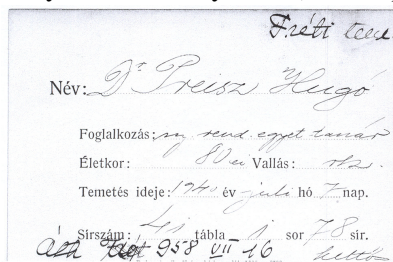 Fréti
Név: Dr Preisz Hugó
Foglalkozás: ny. rend. egyet tanár
Életkor: 80 év Vallás: rk.
Temetés ideje: 1940 év juli hó 7 nap.
Sírszám: 4i tábla 1 sor 78 sír.
958 VII 16